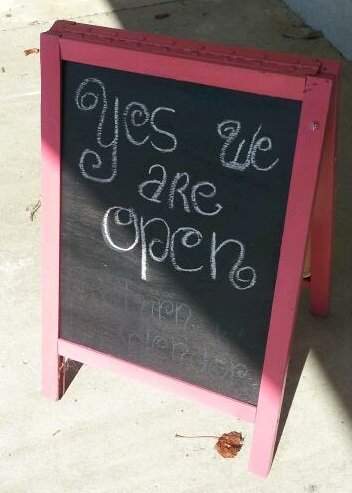 yes we
are
open